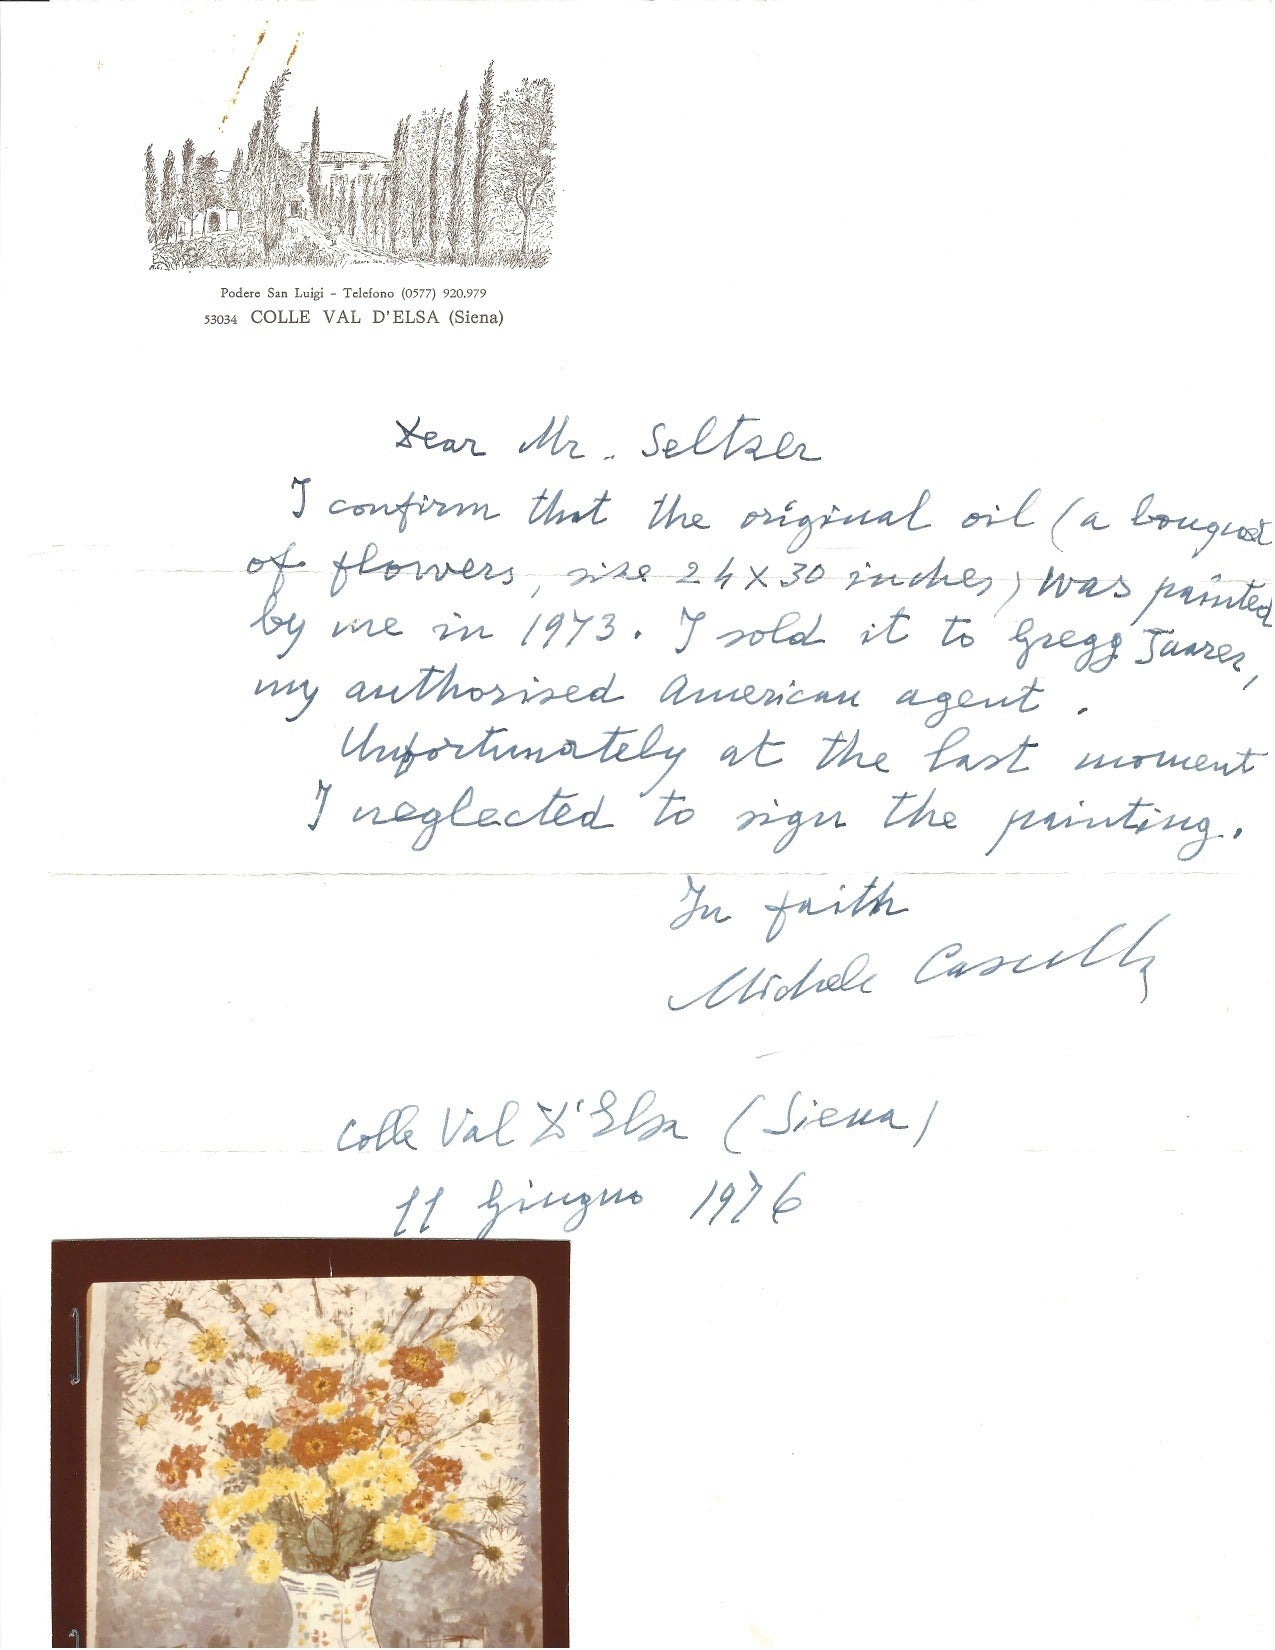 Podere San Luigi - Telefono (0577) 920.979
53034 COLLE VAL D'ELSA (Siena)
Dear Mr. Seltzer
I confirm that the original oil (a bouquet
of flowers, size 24 x 30 inches) was painted
by me in 1973. I sold it to Gregg Juarez,
my authorised American agent.
Unfortunately at the last moment
I neglected to sign the painting.
In faith
Michele Cascella
Colle Val D'Elsa (Siena)
11 Giugno 1976